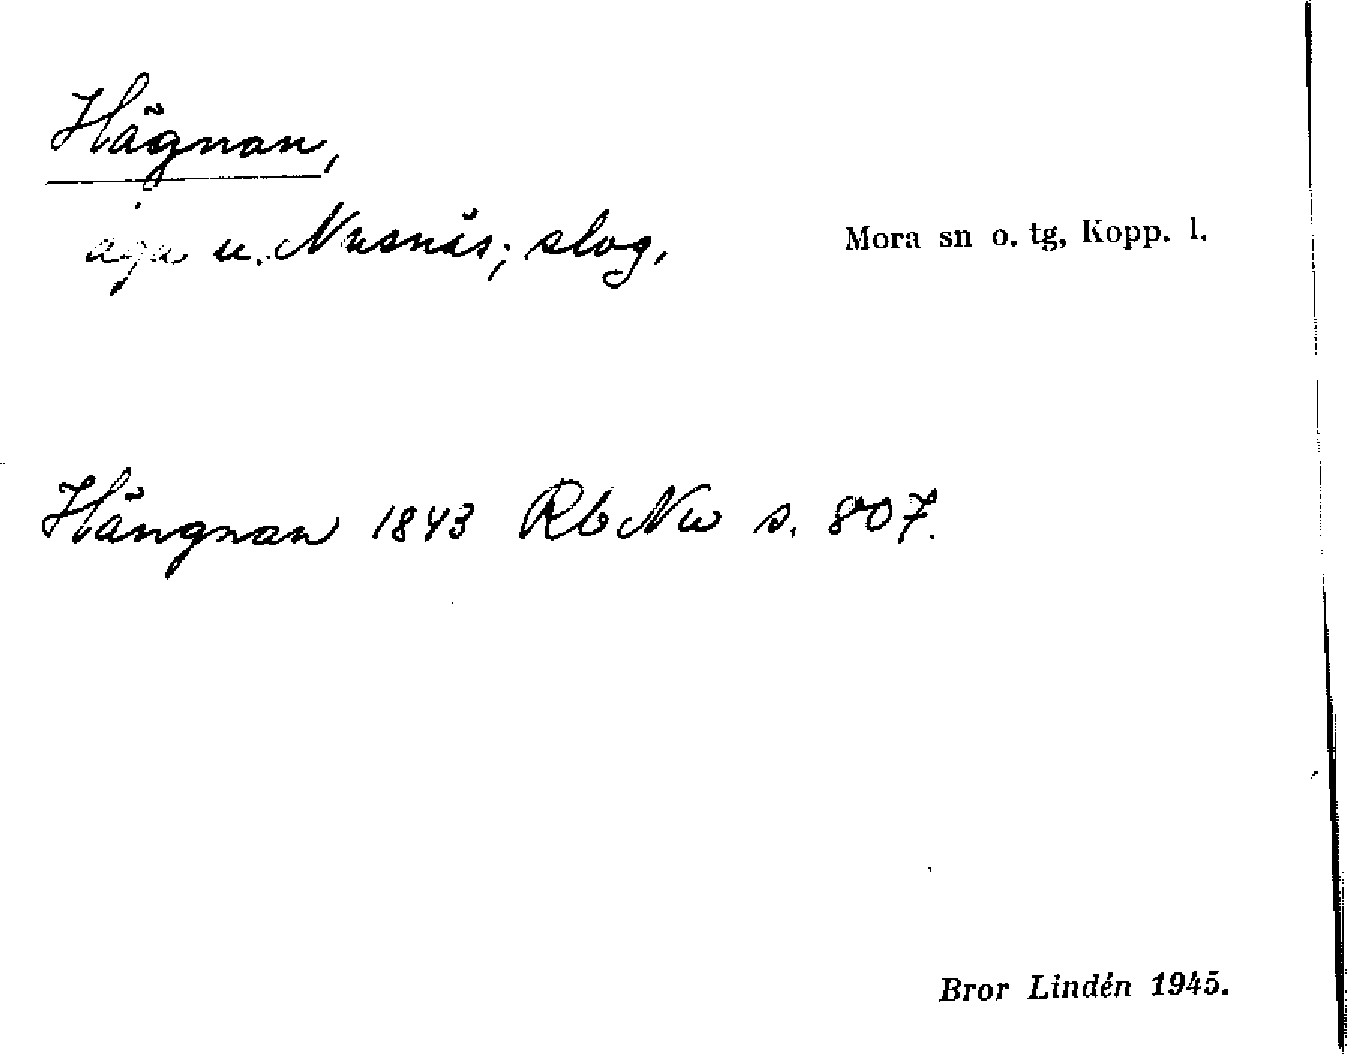 Hägnan,
äga u. Nusnäs; slog,
Mora sn o. tg, Kopp. l.
Hängnan 1843 Rb Nu s. 807.
Bror Lindén 1945.